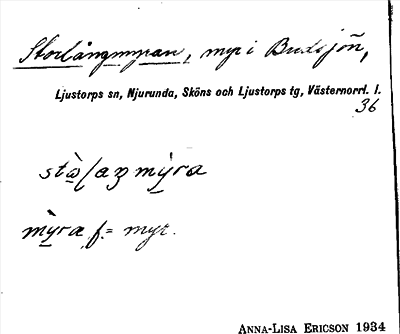 Storlångmyran, myr i Budsjön,
Ljustorps sn, Njurunda, Sköns och Ljustorps tg, Västernorrl. l.
36
mỳra f. = myr.
ANNA-LISA ERICSON 1934